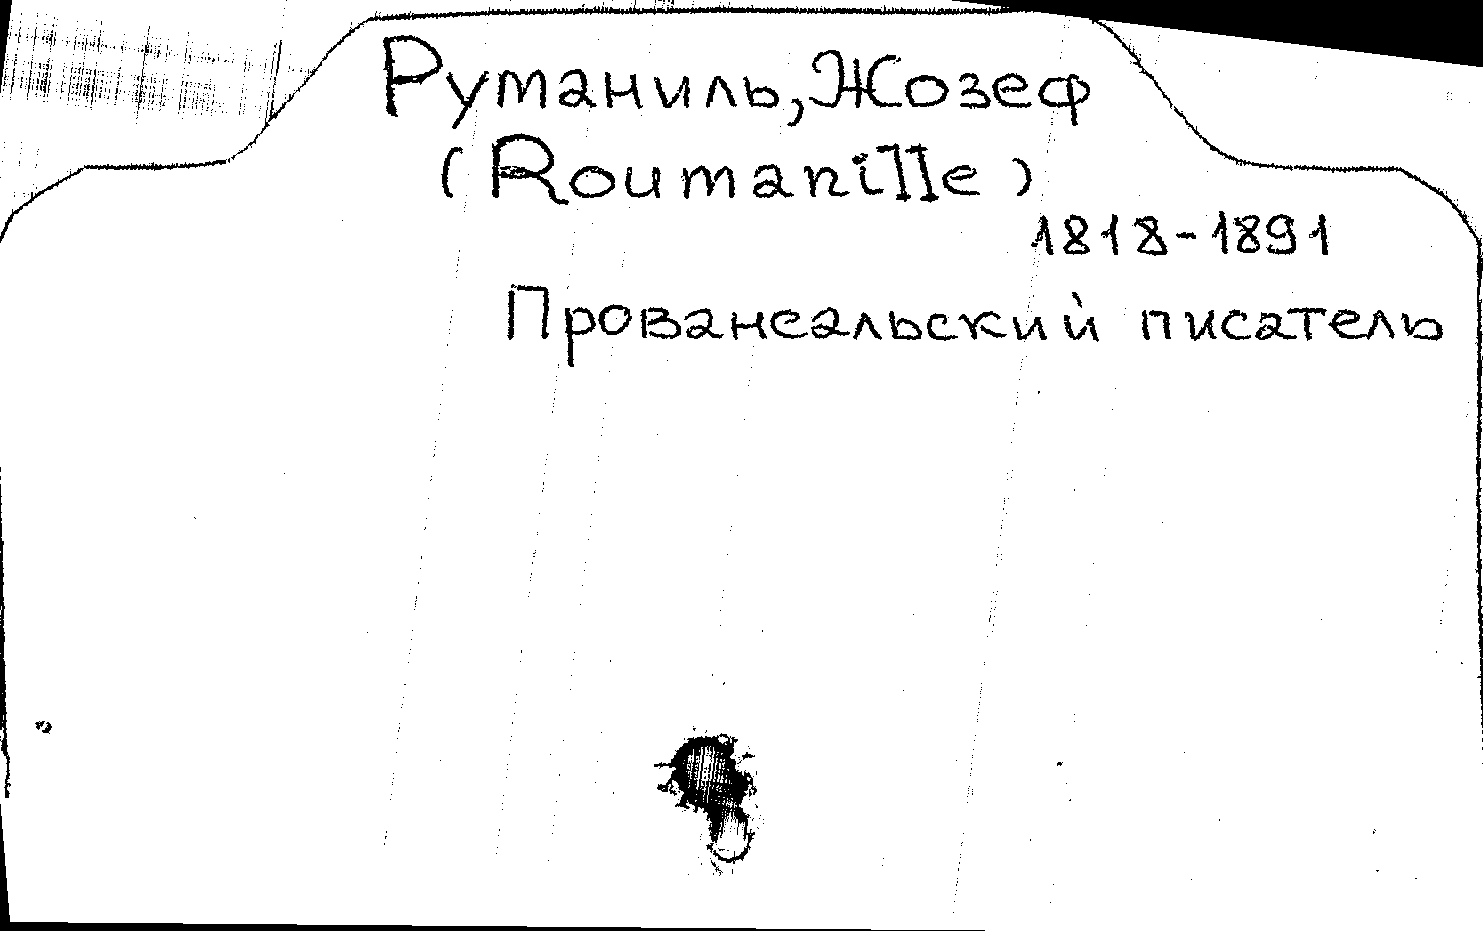 Руманиль, Жозеф
(Roumanille)
1818-1891
Провансальский писатель